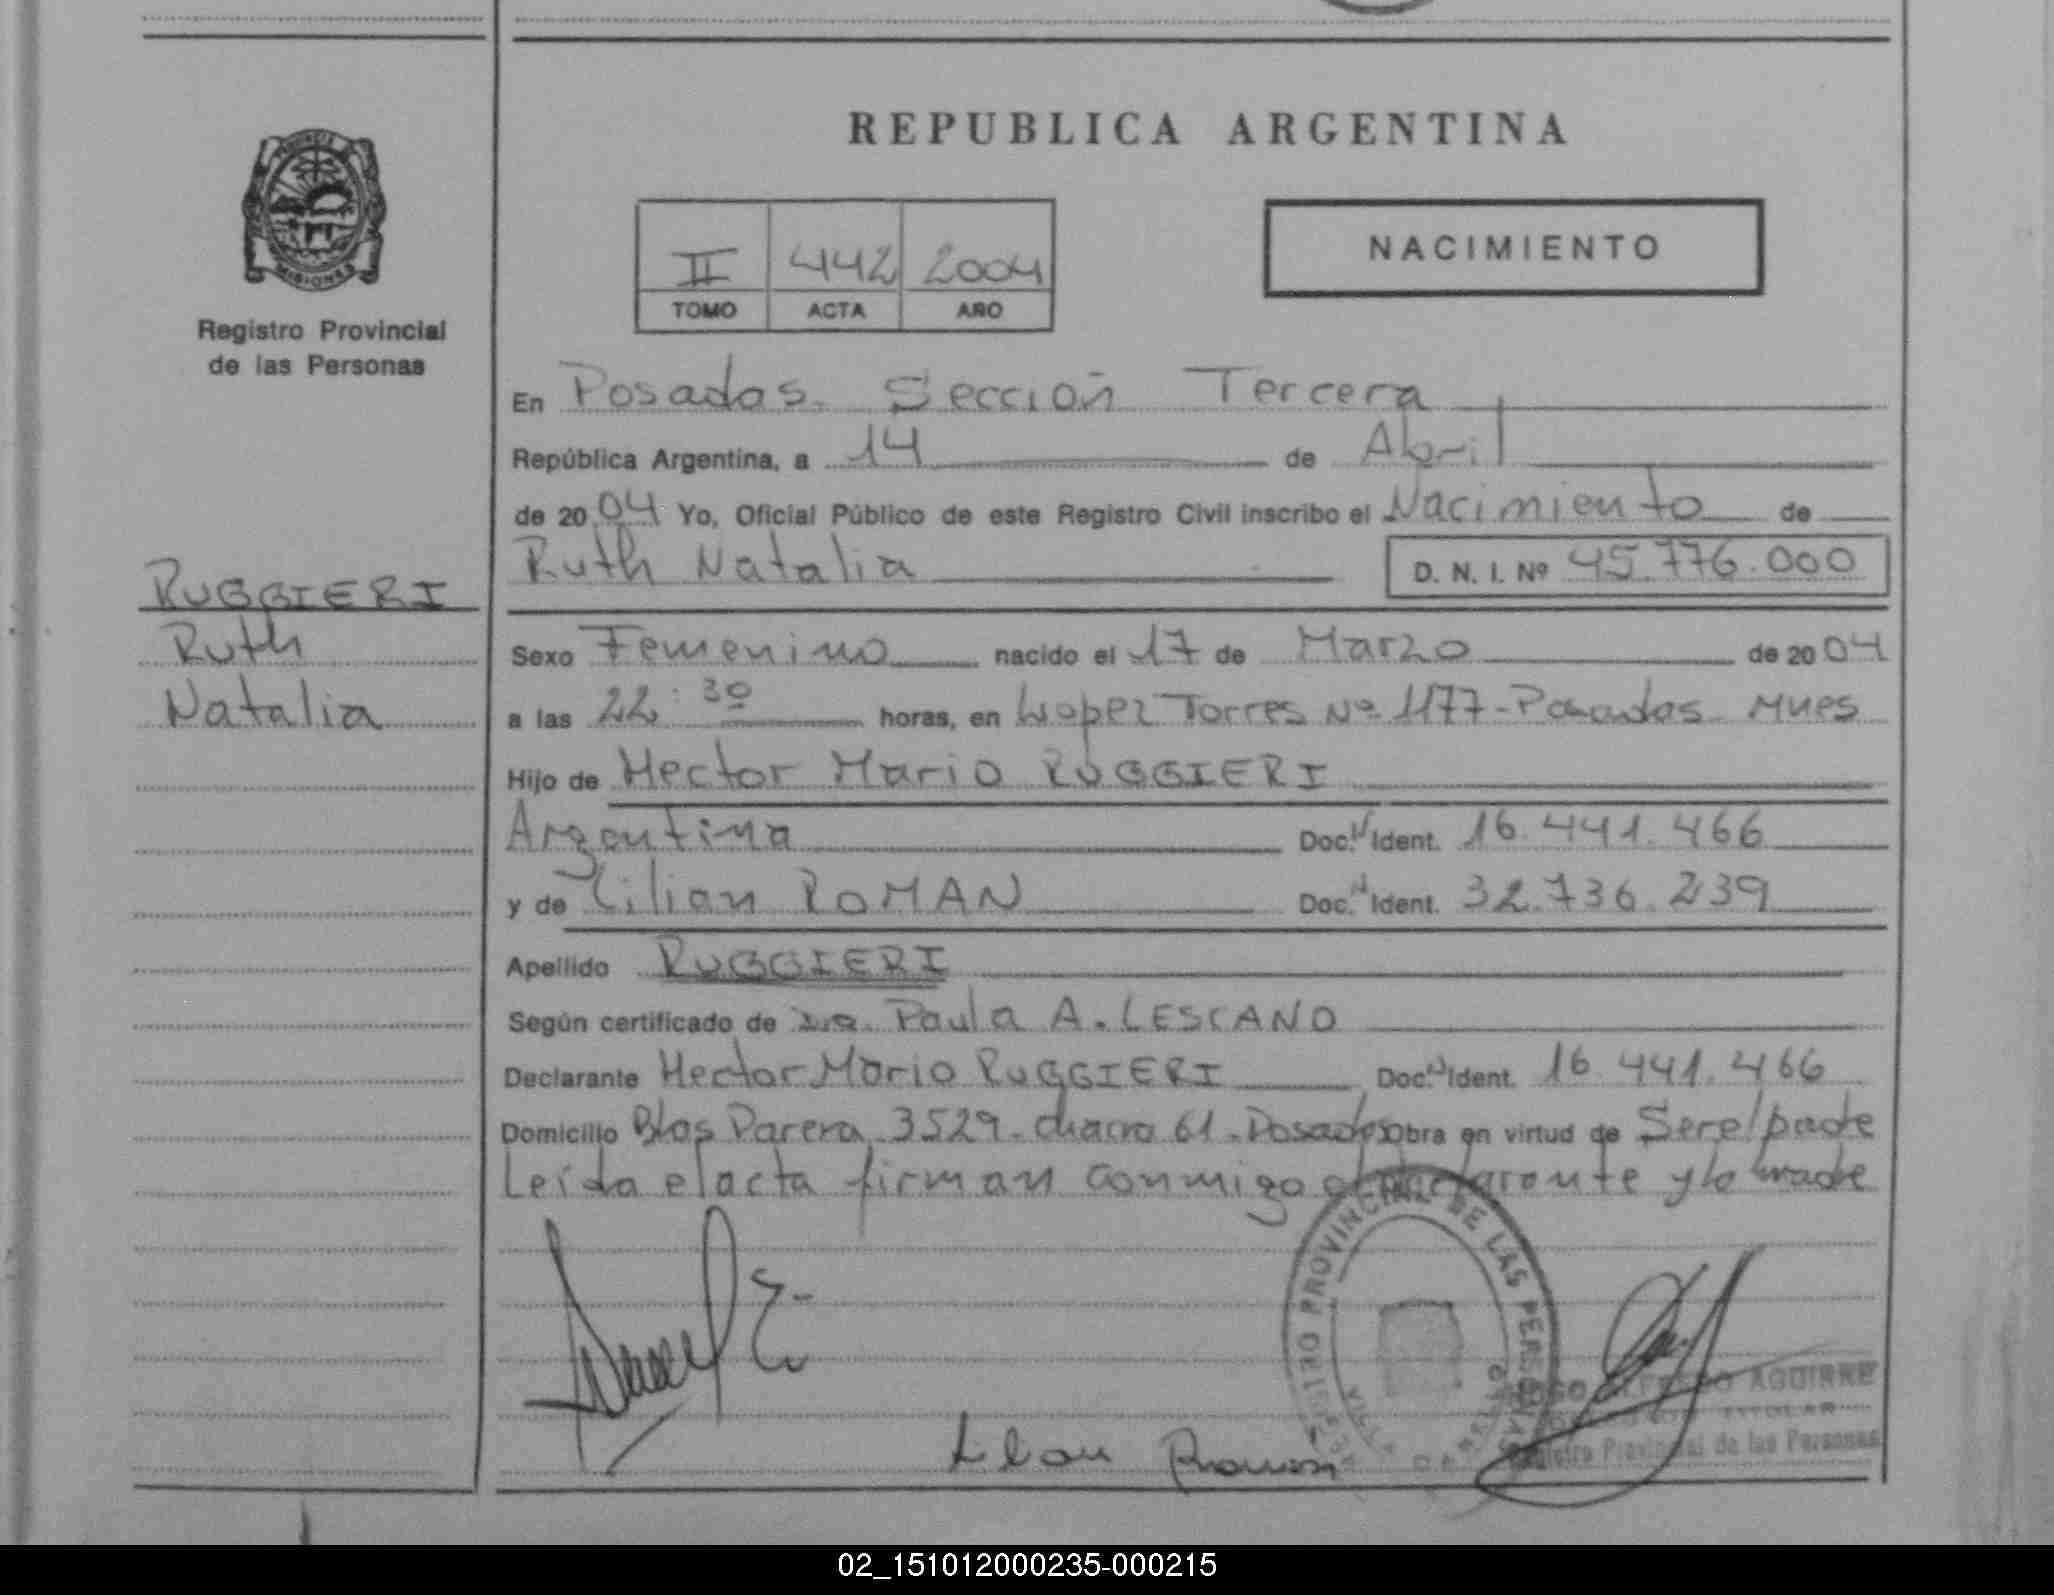 REPUBLICA ARGENTINA
PROVINCIA
MISIONES
Registro Provincial
de las Personas
II 442 2004
TOMO ACTA AÑO
NACIMIENTO
En Posadas Sección Tercera
República Argentina, a 14 de Abril
de 2004 Yo, Oficial Público de este Registro Civil inscribo el Nacimiento de
Ruth Natalia D. N. I. Nº 45.776.000
RUGGIERI
Ruth
Natalia
Sexo Femenino nacido el 17 de Marzo de 2004
a las 22:30 horas, en Lopez Torres Nº 1177-Posadas Mnes
Hijo de Hector Mario RUGGIERI
Argentina Doc. N Ident. 16.441.466
y de Lilian ROMAN Doc. N Ident. 32.736.239
Apellido RUGGIERI
Según certificado de Dra. Paula A. LESCANO
Declarante Hector Mario RUGGIERI Doc. N Ident. 16.441.466
Domicilio Blas Parera 3529. chacra 61. Posadas obra en virtud de Ser el padre
Leída el acta firman conmigo el declarante y la madre
REGISTRO PROVINCIAL DE LAS PERSONAS
Lilian Roman
ALFREDO AGUIRRE
TITULAR
Registro Provincial de las Personas
02_151012000235-000215